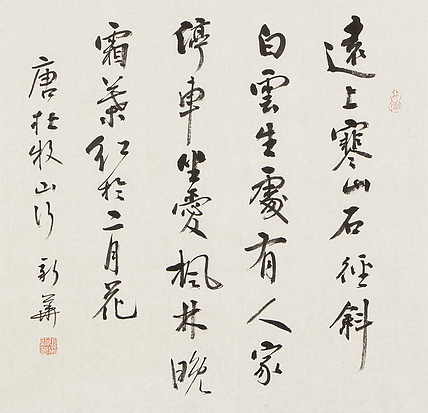 遠上寒山石徑斜
白雲生處有人家
停車坐愛楓林晚
霜葉紅於二月花
唐杜牧山行 新華